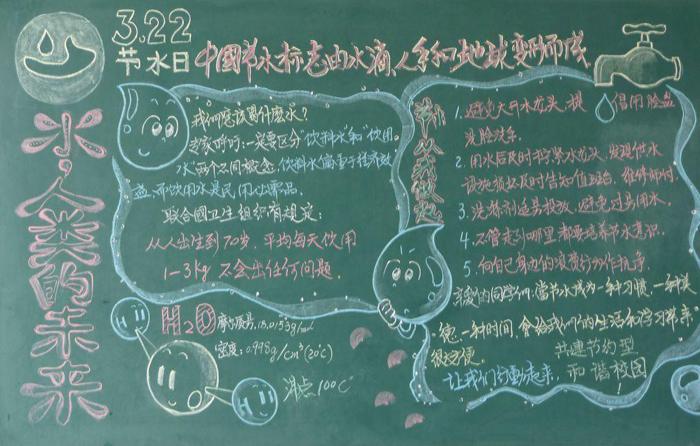 3.22
节水日
中国节水标志由水滴、人手和地球变形而成
水,人类的未来
我们应该喝什么水?
专家呼吁:一定要区分"饮料水"和"饮用
水"两个不同概念,饮料水偏重于经济效
益,而饮用水是民用必需品。
联合国卫生组织有规定:
从人出生到70岁,平均每天饮用
1-3kg 不会出任何问题.
H2O
摩尔质量:18.0153g/mol
密度:0.998g/cm³(20℃)
沸点100℃
1.避免大开水龙头,提倡用脸盆
洗脸洗手.
2.用水后及时拧紧水龙头,发现供水
设施损坏及时告知值班站,维修师付.
3.洗涤剂适量投放,避免过多用水.
4.不管走到哪里都要培养节水意识.
5.向自己身边的浪费行为作抗争.
亲爱的同学们,当节水成为一种习惯,一种美
德,一种时间,会给我们的生活和学习带来
很方便.
共建节约型
和谐校园!
让我们行动起来,